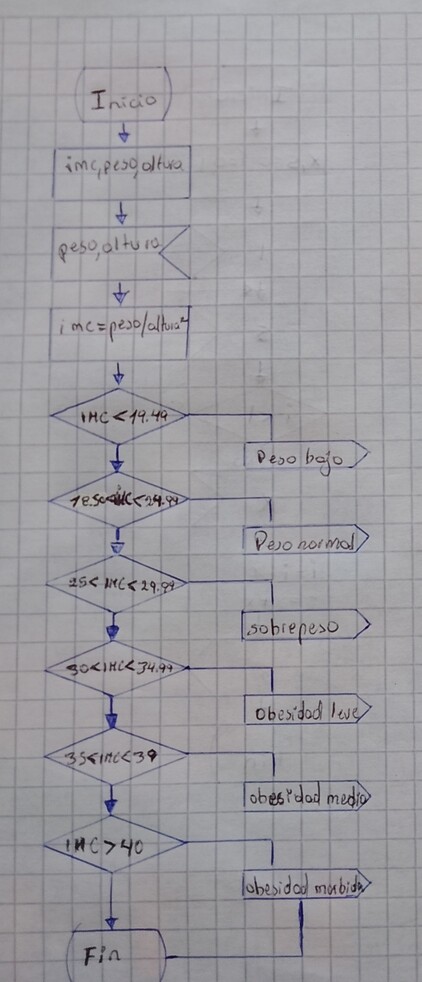 Inicio
imc, peso, altura
peso, altura
imc = peso/altura²
IMC < 19.49
Peso bajo
18.50<IMC<24.99
Peso normal
25<IMC<29.99
sobrepeso
30<IMC<34.99
obesidad leve
35<IMC<39
obesidad media
IMC >40
obesidad morbida
Fin